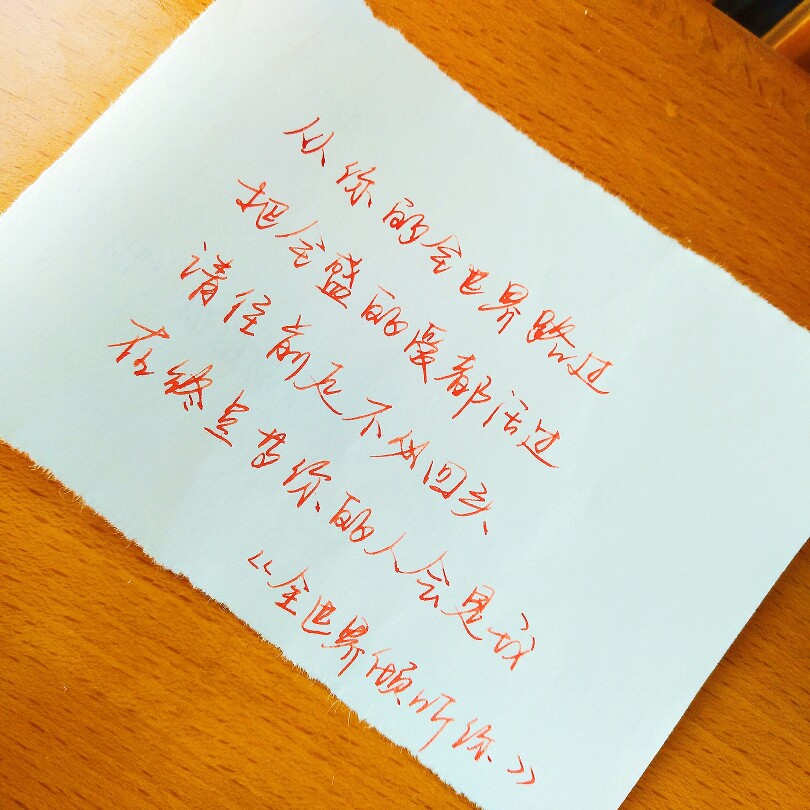 从你的全世界路过
把全盛的爱都活过
请往前走不必回头
在终点等你的人会是我
《全世界倾听你》